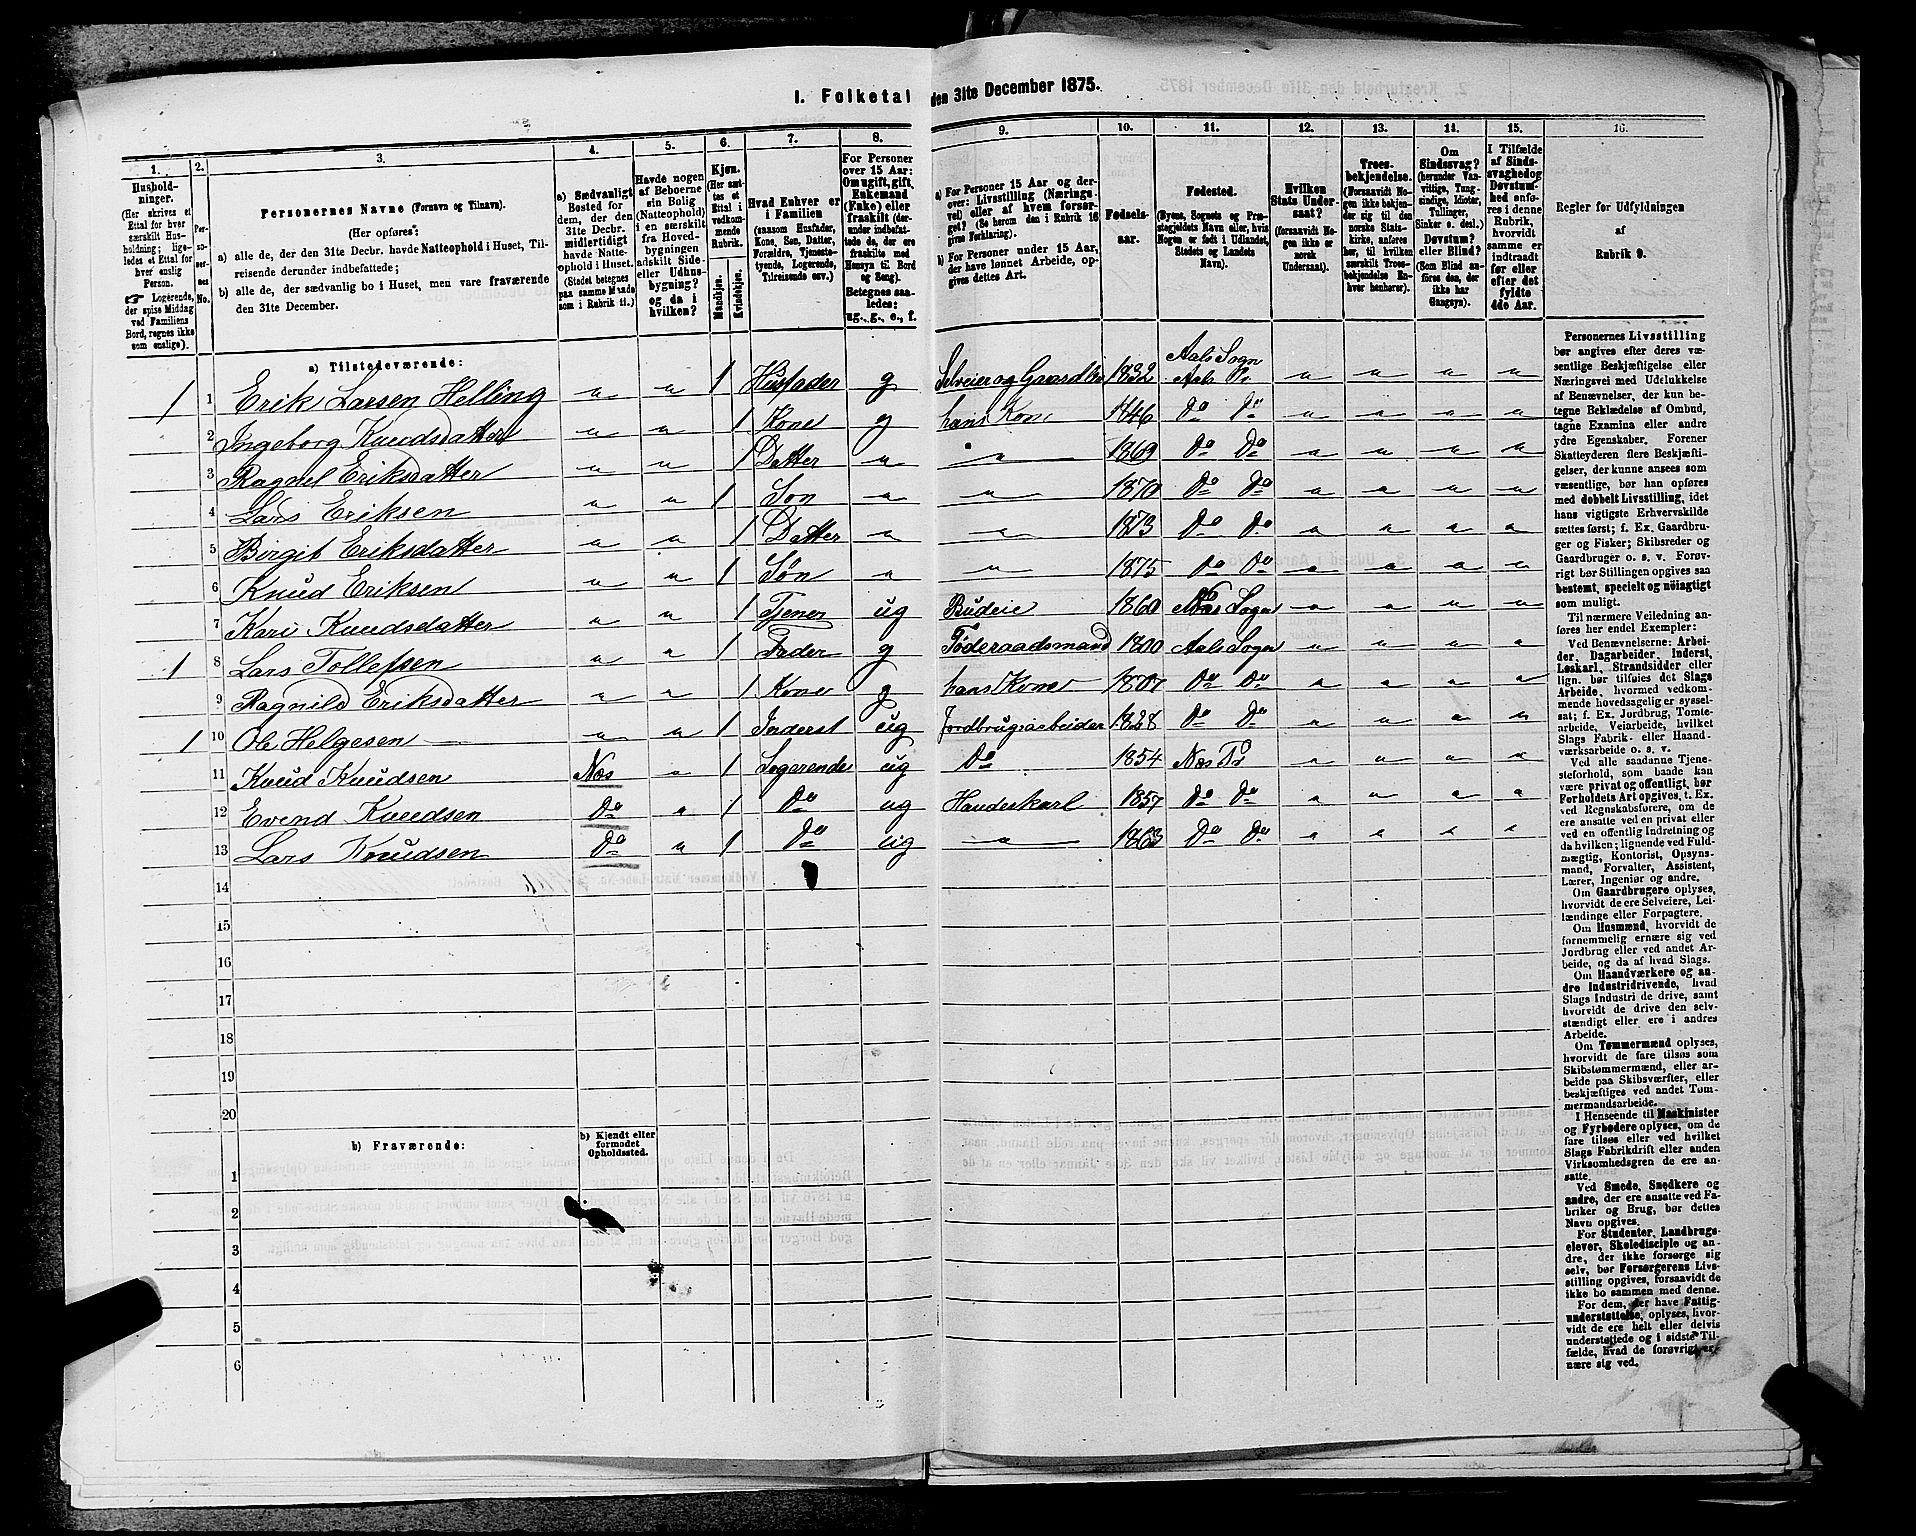 I. Folketal den 31te December 1875.
1. 2. 3. 4. 5. 6. 7. 8. 9. 10. 11. 12. 13. 14. 15. 16.
Husholdninger.
(Her skrives et Ettal for hver særskilt Husholdning; ligeledes et Ettal for hver enslig Person.
☞ Logerende, der spise Middag ved Familiens Bord, regnes ikke som enslige).
Personernes No.
Personernes Navne (Fornavn og Tilnavn).
(Her opføres:
a) alle de, der den 31te Decbr. havde Natteophold i Huset, Tilreisende derunder indbefattede;
b) alle de, der sædvanlig bo i Huset, men vare fraværende den 31te December.
a) Sædvanligt Bosted for dem, der den 31te Decbr. midlertidigt havde Natteophold i Huset. (Stedet betegnes paa samme Maade som i Rubrik 11.)
Havde nogen af Beboerne sin Bolig (Natteophold) i en særskilt fra Hovedbygningen adskilt Side- eller Udhusbygning? og da i hvilken?
Kjøn. (Her sættes et Ettal i vedkommende Rubrik.
Mandkjøn. Kvindekjøn.
Hvad Enhver er i Familien
(saasom Husfader, Kone, Søn, Datter, Forældre, Tjenestetyende, Logerende, Tilreisende osv.)
For Personer over 15 Aar: Om ugift, gift, Enkemand (Enke) eller fraskilt (derunder indbefattede de, der ere fraskilte med Hensyn til Bord og Seng). Betegnes saaledes: ug., g., e., f.
a) For Personer 15 Aar og derover: Livsstilling (Næringsvei) eller af hvem forsørget? (Se herom den i Rubrik 16 givne Forklaring).
b) For Personer under 15 Aar, der have lønnet Arbeide, opgives dettes Art.
Fødselsaar.
Fødested.
(Byens, Sognets og Præstegjeldets Navn eller, hvis Nogen er født i Udlandet, Stedets og Landets Navn).
Hvilken Stats Undersaat? (forsaavidt Nogen ikke er norsk Undersaat).
Troesbekjendelse. (Forsaavidt Nogen ikke bekjender sig til den norske Statskirke, anføres her, til hvilken særskilt Troesbekjendelse Enhver henhører).
Om Sindssvag? (herunder Vanvittige, Tungsindige, Idioter, Tullinger, Sinker o. desl.) Døvstum? eller Blind? (Som Blind anføres den, der ikke har Gangsyn).
I Tilfælde af Sindssvaghed og Døvstumhed anføres i denne Rubrik, hvorvidt samme er indtraadt før eller efter det fyldte 4de Aar.
Regler for Udfyldningen af Rubrik 9.
a) Tilstedeværende:
1 1 Erik Larsen Helling " " 1 Husfader g Selveier og Gaardbr 1832 Aals Sogn Aals Pr " " " "
2 Ingeborg Knudsdatter " " 1 Kone g hans Kone 1846 Do Do " " " "
3 Ragnil Eriksdatter " " 1 Datter " " 1869 Do Do " " " "
4 Lars Eriksen " " 1 Søn " " 1870 Do Do " " " "
5 Birgit Eriksdatter " " 1 Datter " " 1873 Do Do " " " "
6 Knud Eriksen " " 1 Søn " " 1875 Do Do " " " "
7 Kari Knudsdatter " " 1 Tjener ug Budeie 1860 Næs Sogn " " " "
1 8 Lars Tollefsen " " 1 Fader g Føderaadsmand 1800 Aals Sogn " " " "
9 Ragnild Eriksdatter " " 1 Kone g hans Kone 1807 Do Do " " " "
1 10 Ole Helgesen " " 1 Inderst ug Jordbrugsarbeider 1828 Do Do " " " "
11 Knud Knudsen Næs " 1 Logerende ug Do 1854 Næs Pr " " " "
12 Evend Knudsen Do " 1 Do ug Handeskarl 1857 Do Do " " " "
13 Lars Knudsen Do " 1 Do ug " 1863 Do Do " " " "
14
15
16
17
18
19
20
b) Fraværende:
b) Kjendt eller formodet Opholdssted.
1
2
3
4
5
6
Personernes Livsstilling
bør angives efter deres væ-
sentlige Beskjæftigelse eller
Næringsvei med Udelukkelse
af Benævnelser, der kun be-
tegne Beklædelse af Ombud,
tagne Examina eller andre
ydre Egenskaber. Forener
Skatteyderen flere Beskjæfti-
gelser, der kunne ansees som
væsentlige, bør han opføres
med dobbelt Livsstilling, idet
hans vigtigste Erhvervskilde
sættes først; f. Ex. Gaardbru-
ger og Fisker; Skibsreder og
Gaardbruger o. s. v. Forøv-
rigt bør Stillingen opgives saa
bestemt, specielt og nöiagtigt
som muligt.
Til nærmere Veiledning an-
føres her endel Exempler:
Ved Benævnelserne: Arbei-
der, Dagarbeider, Inderst,
Løskarl, Strandsidder eller
lign. bør tilføies det Slags
Arbeide, hvormed vedkom-
mende hovedsagelig er syssel-
sat; f. Ex. Jordbrug, Tomte-
arbeide, Veiarbeide, hvilket
Slags Fabrik- eller Haand-
værksarbeide o. s. v.
Ved alle saadanne Tjene-
steforhold, som baade kan
være privat og offentligt, bør
Forholdets Art opgives, t. Ex.
ved Regnskabsførere, om de
ere ansatte ved en privat eller
ved en offentlig Indretning og
da hvilken; lignende ved Fuld-
mægtig, Kontorist, Opsyns-
mand, Forvalter, Assistent,
Lærer, Ingeniør og andre.
Om Gaardbrugere oplyses,
hvorvidt de ere Selveiere, Lei-
lændinge eller Forpagtere.
Om Husmænd, hvorvidt de
fornemmelig ernære sig ved
Jordbrug eller ved andet Ar-
beide, og da af hvad Slags.
Om Haandværkere og an-
dre Industridrivende, hvad
Slags Industri de drive, samt
hvorvidt de drive den selv-
stændigt eller ere i andres
Arbeide.
Om Tømmermænd oplyses,
hvorvidt de fare tilsøs som
Skibstømmermænd, eller ar-
beide paa Skibsværfter, eller
beskjæftiges ved andet Tøm-
mermandsarbeide.
I Henseende til Maskinister
og Fyrbødere oplyses, om de
fare tilsøs eller ved hvilket
Slags Fabrikdrift eller anden
Virksomhedsgren de ere an-
satte.
Ved Smede, Snedkere og
andre, der ere ansatte ved Fa-
briker og Brug, bør dettes
Navn opgives.
For Studenter, Landbrugs-
elever, Skoledisciple og an-
dre, der ikke forsørge sig
selv, bør Forsørgerens Livs-
stilling opgives, forsaavidt de
ikke bo sammen med denne.
For dem, der have Fattig-
understøttelse, oplyses, hvor-
vidt de ere helt eller delvis
understøttede og i sidste Til-
fælde, hvad de forøvrigt er-
nære sig ved.